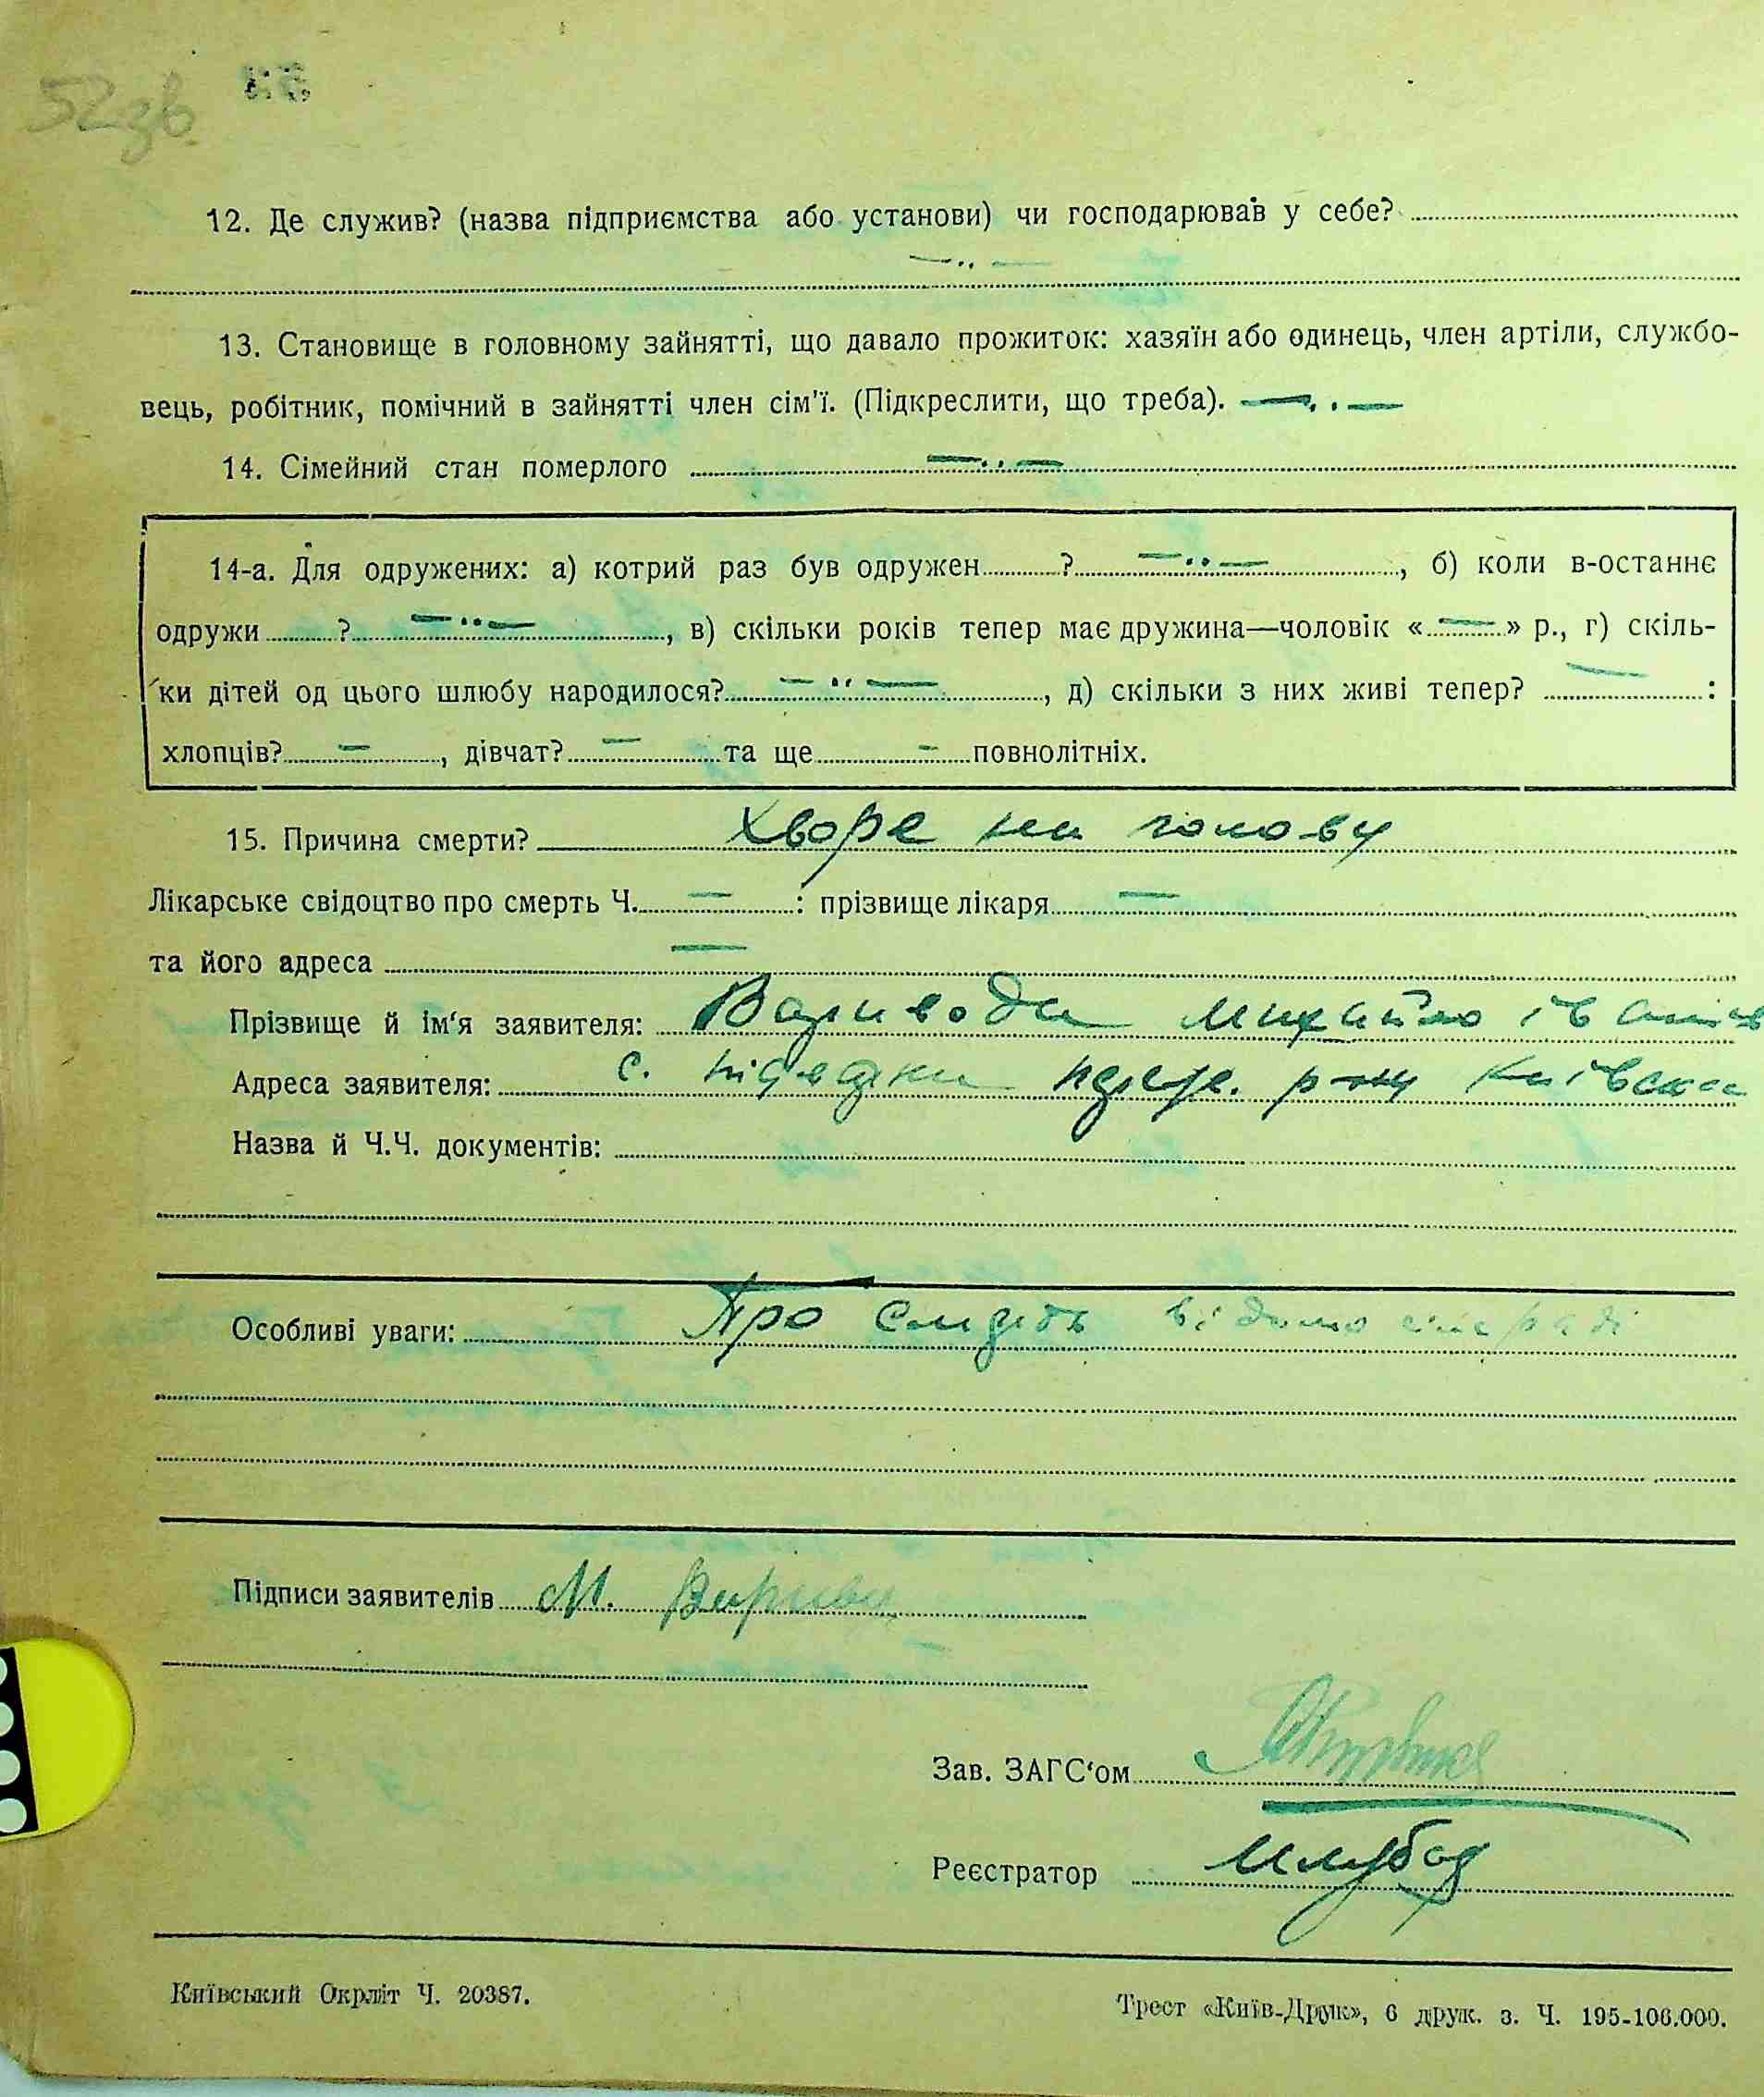 52зв.
12. Де служив? (назва підприємства або установи) чи господарював у себе?
— „ —
13. Становище в головному зайнятті, що давало прожиток: хазяїн або одинець, член артіли, службо-
вець, робітник, помічний в зайнятті член сім'ї. (Підкреслити, що треба). — . . —
14. Сімейний стан померлого — . . —
14-а. Для одружених: а) котрий раз був одружен ? — .. — , б) коли в-останнє
одружи ? — .. — , в) скільки років тепер має дружина—чоловік « — » р., г) скіль-
ки дітей од цього шлюбу народилося? — .. — , д) скільки з них живі тепер? — :
хлопців? — , дівчат? — та ще — повнолітніх.
15. Причина смерти? Хворе на голову
Лікарське свідоцтво про смерть Ч. — : прізвище лікаря —
та його адреса —
Прізвище й ім'я заявителя: Варивода Михайло
Адреса заявителя: с. р-ну Київська
Назва й Ч.Ч. документів:
Особливі уваги: Про смерть відомо сільраді
Підписи заявителів М.
Зав. ЗАГС'ом
Реєстратор
Київський Окрліт Ч. 20387.
Трест «Київ-Друк», 6 друк. з. Ч. 195-106.000.